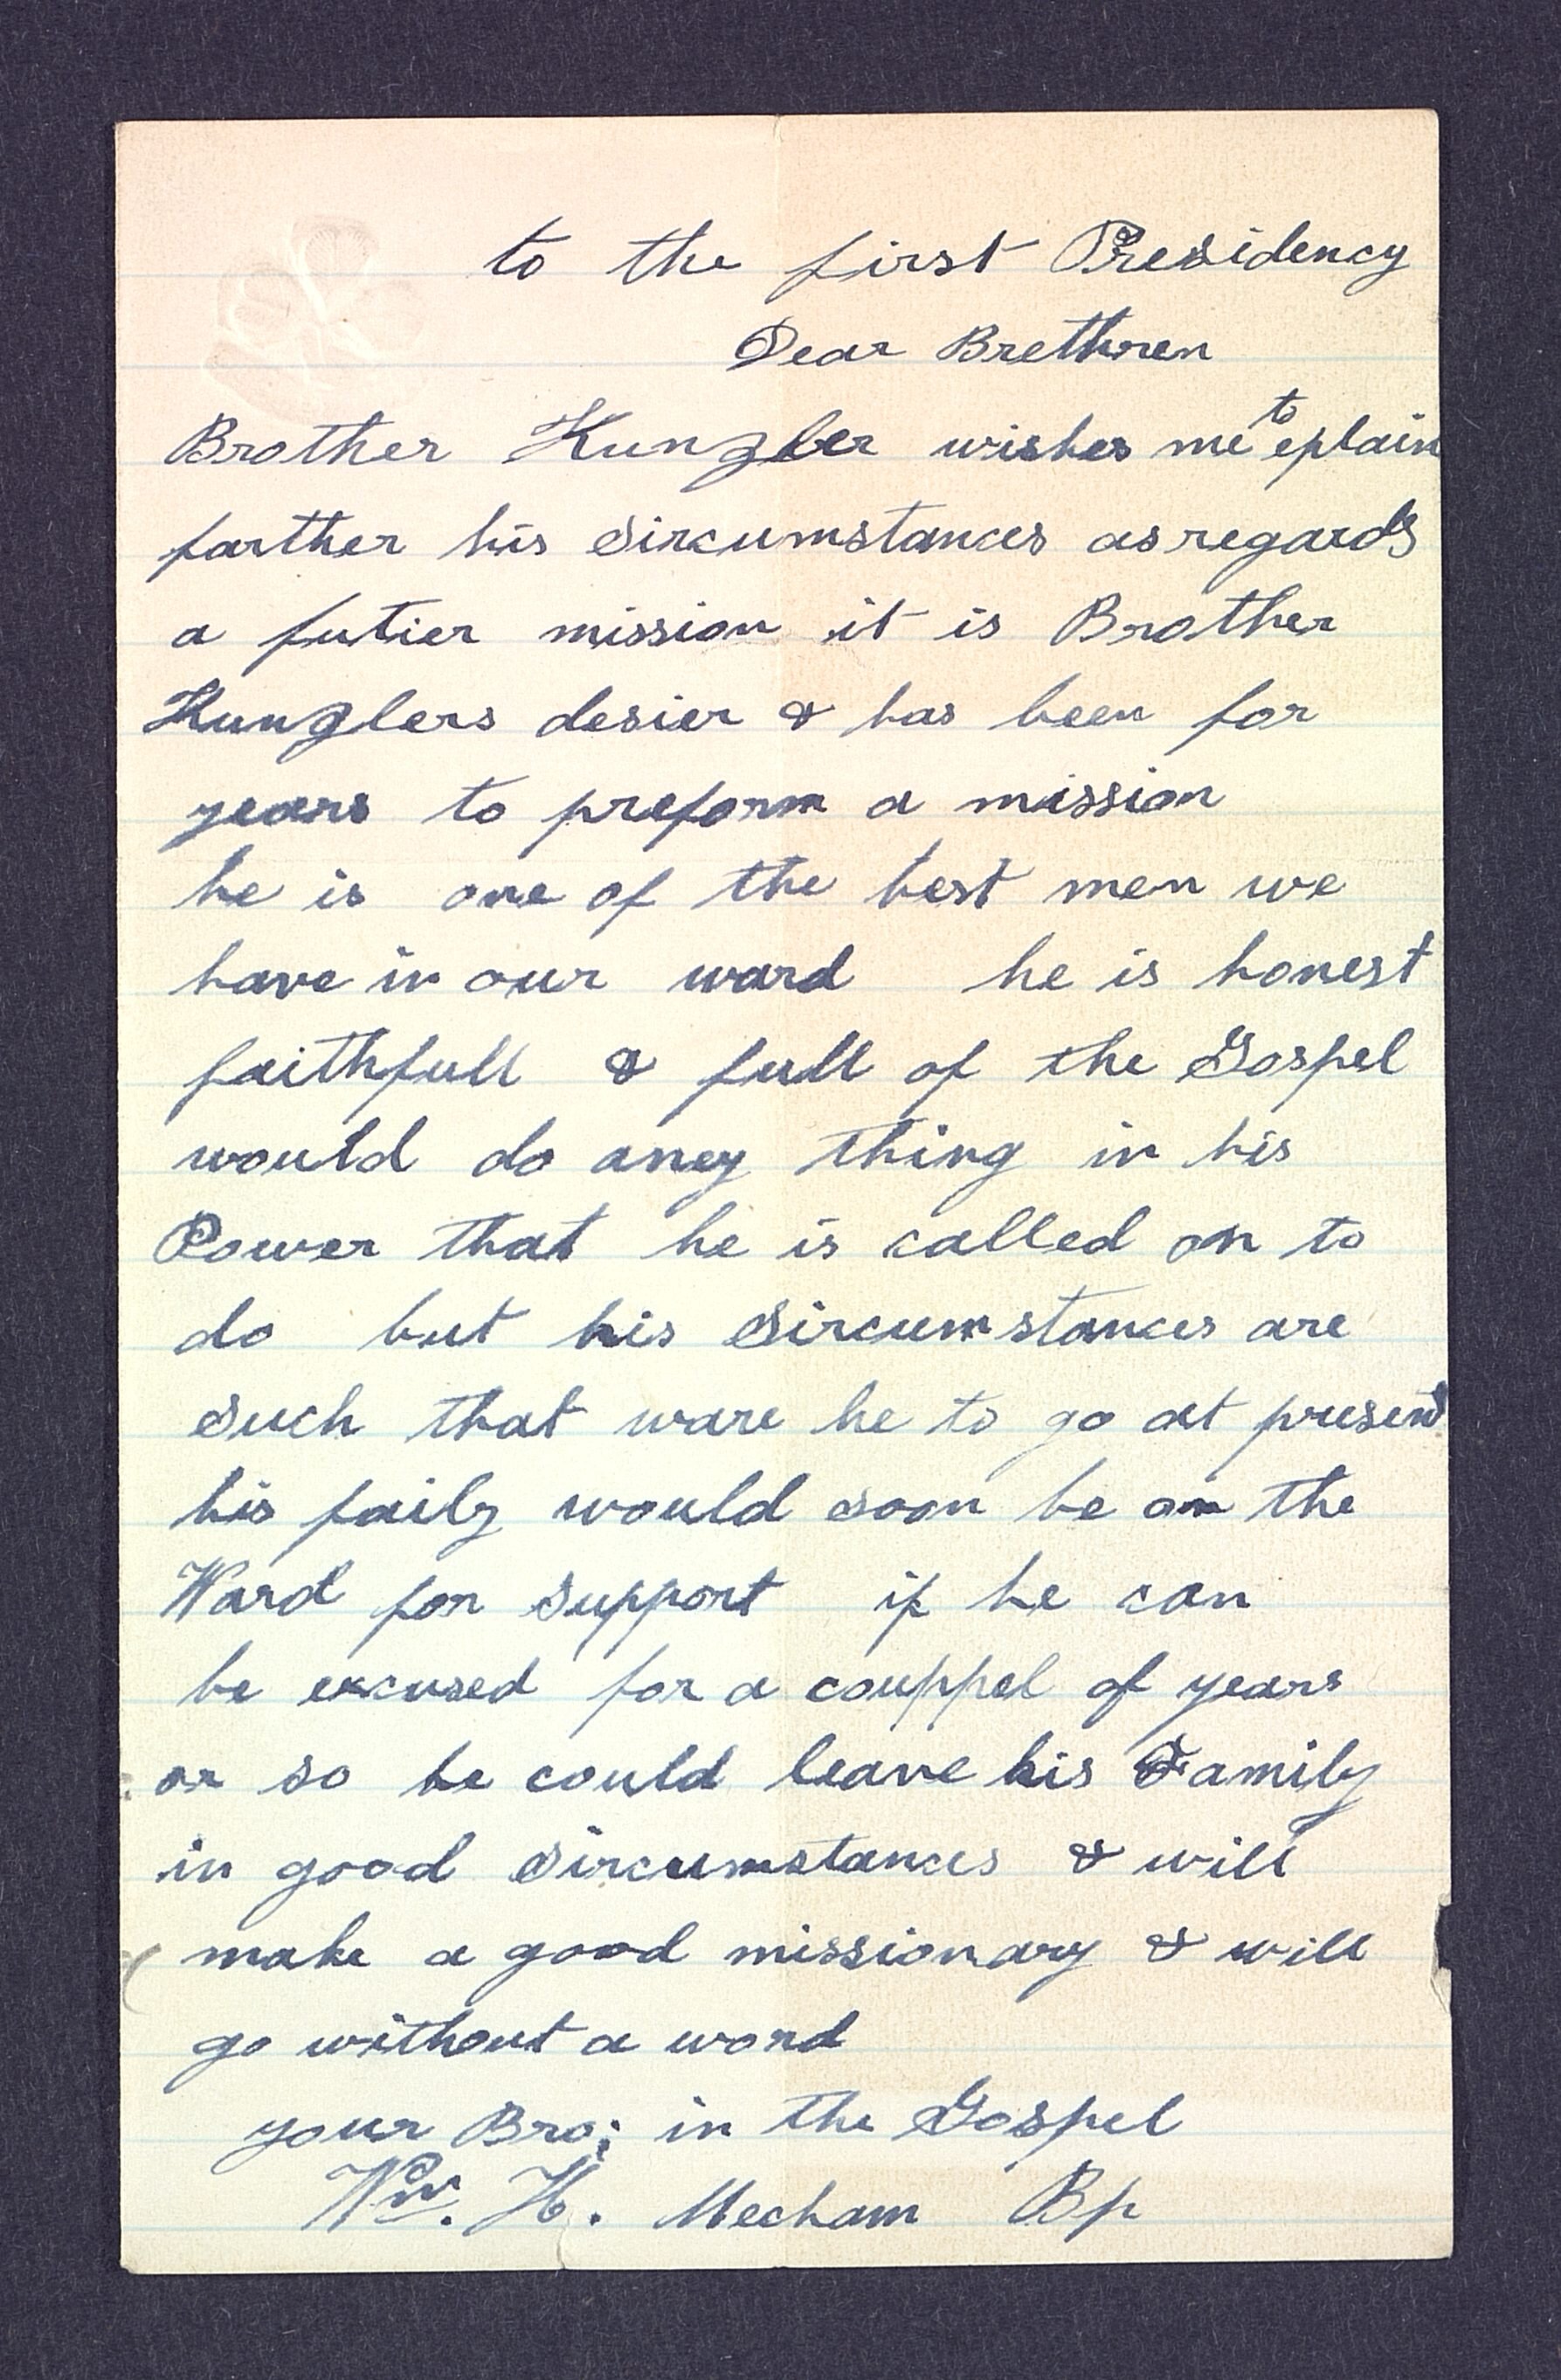 to the first Presidency
Dear Brethren
Brother Kunzler wishes me to eplain
farther his Sircumstances as regards
a futier mission it is Brother
Kunzlers desier & has been for
years to preform a mission
he is one of the best men we
have in our ward he is honest
faithfull & full of the Gospel
would do aney thing in his
Power that he is called on to
do but his Sircumstances are
Such that ware he to go at present
his faily would soon be on the
Ward for Support if he can
be excused for a couppel of years
or so he could leave his Family
in good Sircumstances & will
make a good missionary & will
go without a word
your Bro; in the Gospel
Wm. H. Mecham Bp